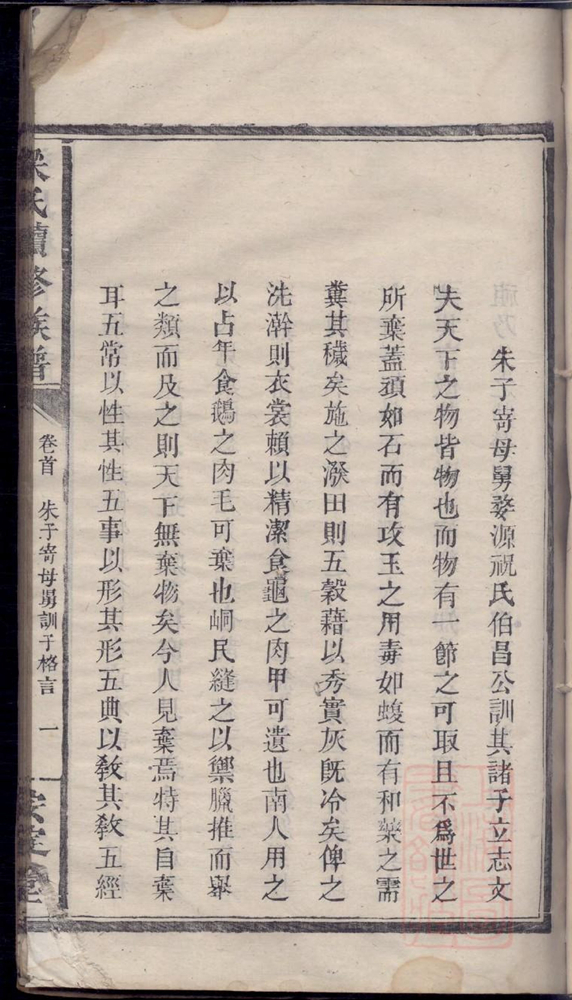 朱子寄母舅婺源祝氏伯昌公訓其諸子立志文
夫天下之物皆物也而物有一節之可取且不爲世之
所棄蓋頑如石而有攻玉之用毒如蝮而有和藥之需
糞其穢矣施之發田則五榖藉以秀實灰旣冷矣俾之
洗澣則衣裳賴以精潔食龜之肉甲可遺也南人用之
以占年食鵝之肉毛可棄也峒民縫之以禦臘推而舉
之類而及之則天下無棄物矣今人見棄焉特其自棄
耳五常以性其性五事以形其形五典以敎其敎五經
氏續修族譜
卷首
朱子寄母舅訓子格言
一
堂